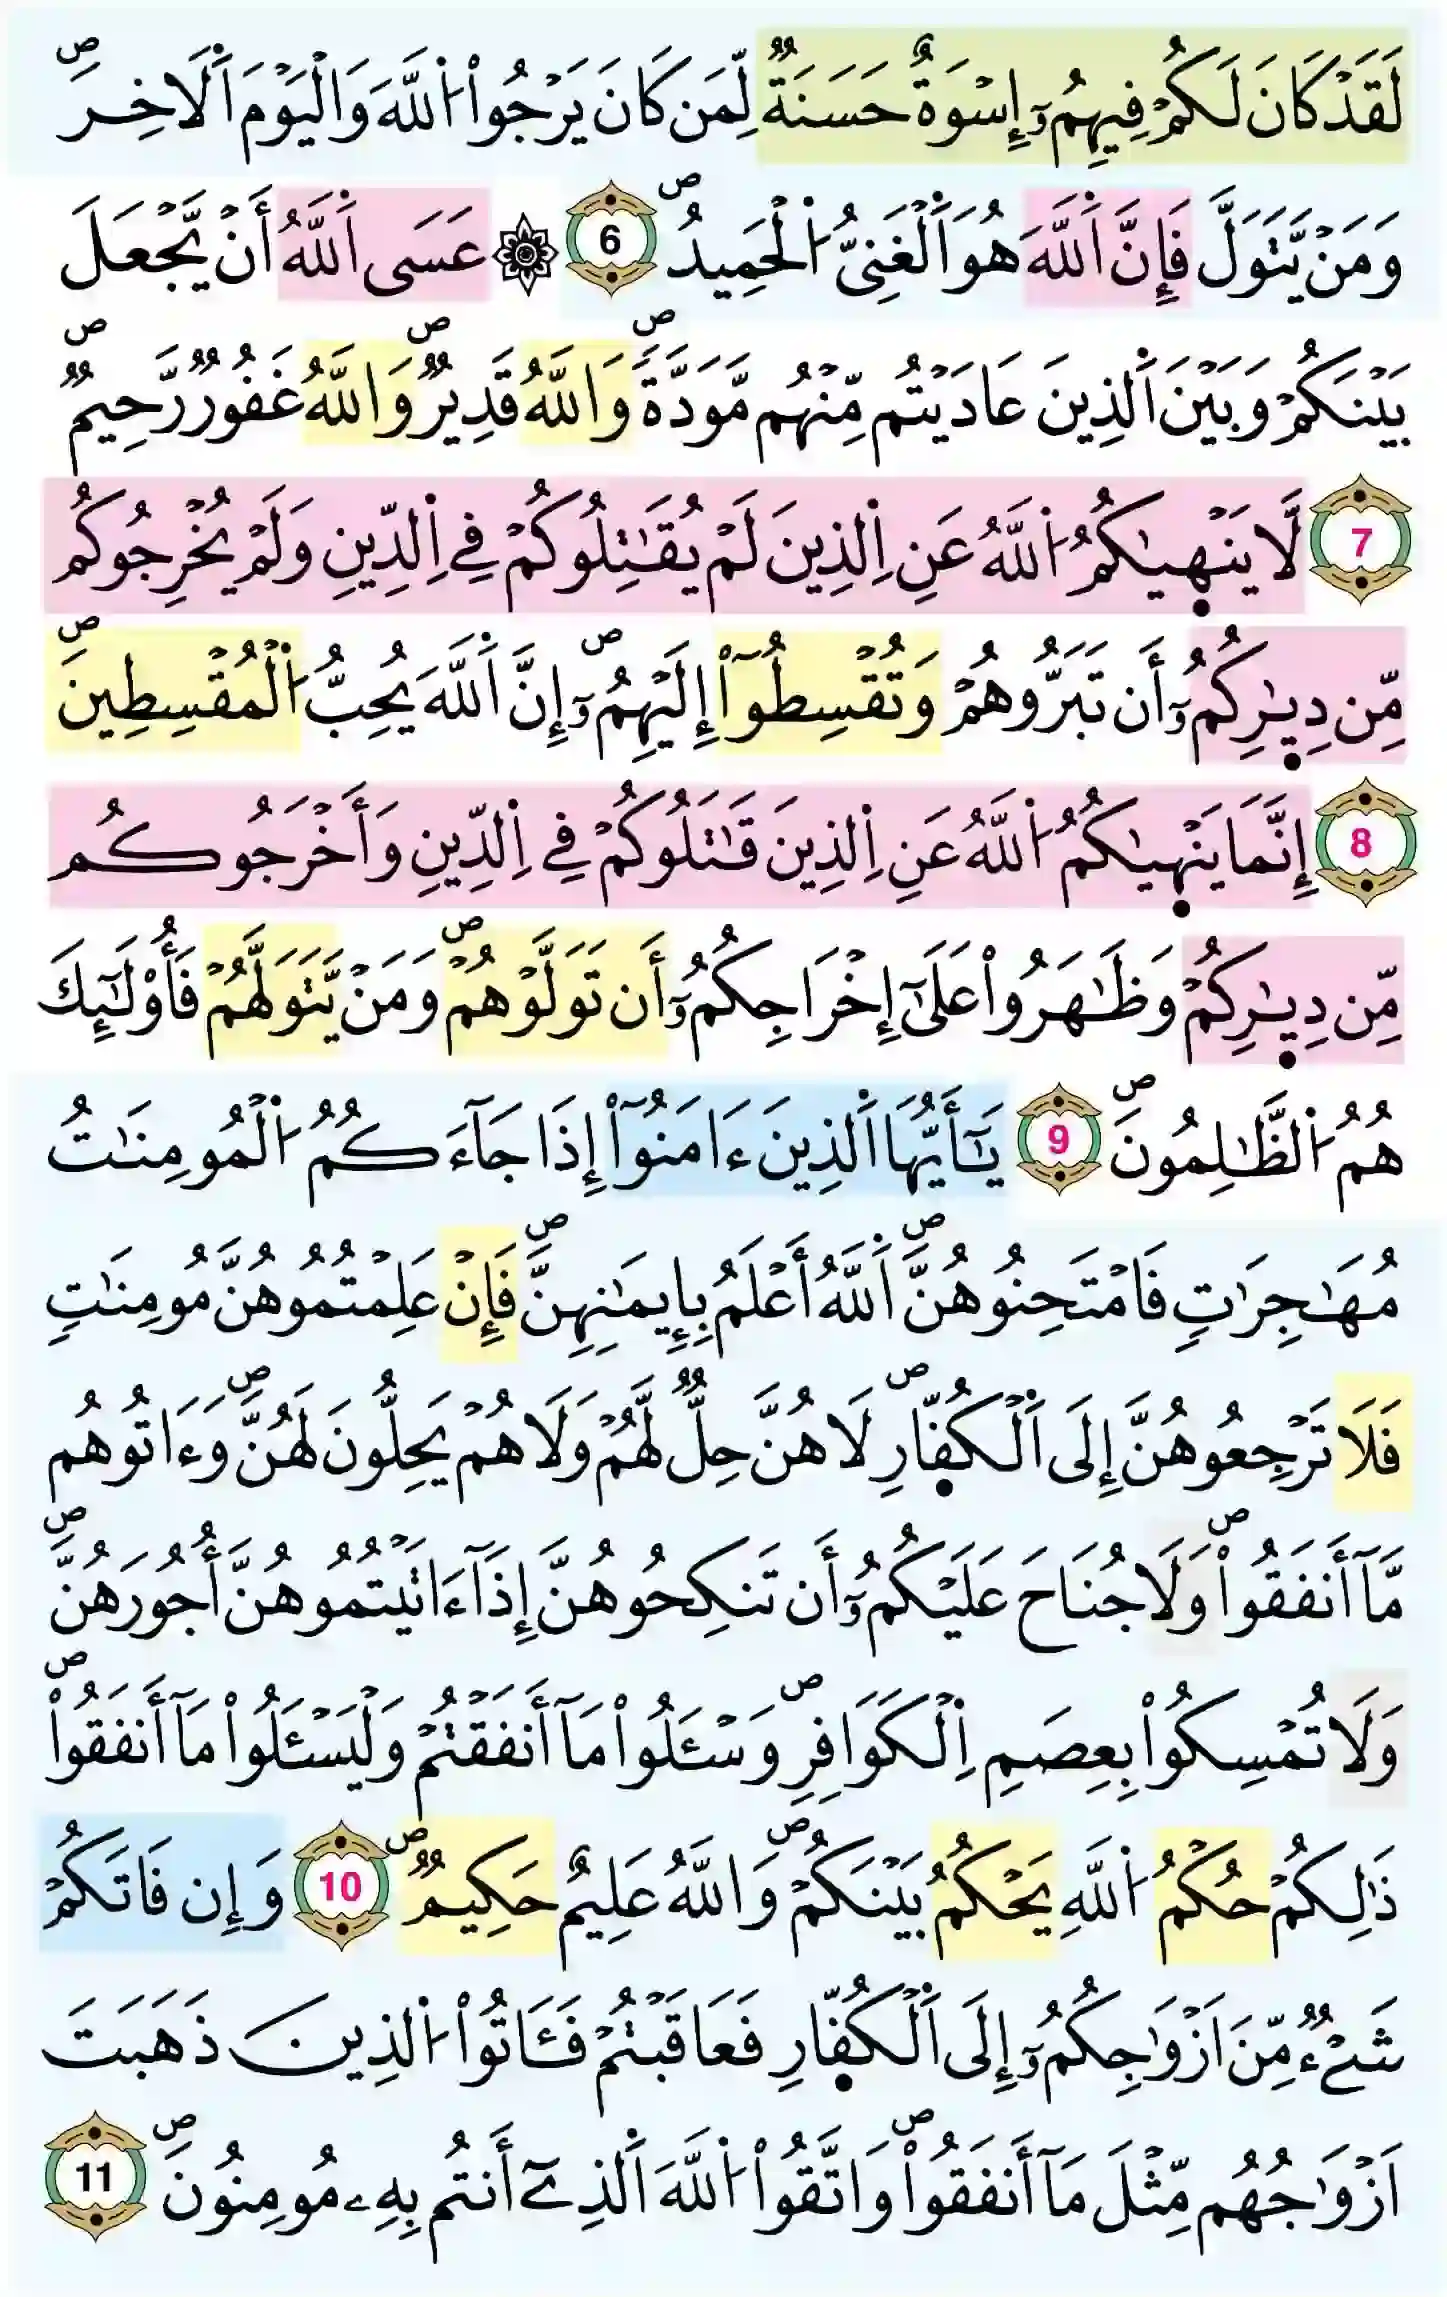 لَقَدْ كَانَ لَكُمْ فِيهِمُۥٓ إِسْوَةٌ حَسَنَةٌ لِّمَن كَانَ يَرْجُواْ اُ۬للَّهَ وَالْيَوْمَ اَ۬لَاخِرَۖ
وَمَنْ يَّتَوَلَّ فَإِنَّ اَ۬للَّهَ هُوَ اَ۬لْغَنِيُّ اُ۬لْحَمِيدُۖ 6 ۞ عَسَى اَ۬للَّهُ أَنْ يَّجْعَلَ
بَيْنَكُمْ وَبَيْنَ اَ۬لذِينَ عَادَيْتُم مِّنْهُم مَّوَدَّةٗۖ وَاللَّهُ قَدِيرٞۖ وَاللَّهُ غَفُورٞ رَّحِيمٞۖ
7 لَّا يَنْهَيٰكُمُ اُ۬للَّهُ عَنِ اِ۬لذِينَ لَمْ يُقَٰتِلُوكُمْ فِے اِ۬لدِّينِ وَلَمْ يُخْرِجُوكُم
مِّن دِيٰ۪رِكُمُۥٓ أَن تَبَرُّوهُمْ وَتُقْسِطُوٓاْ إِلَيْهِمُۥٓۖ إِنَّ اَ۬للَّهَ يُحِبُّ اُ۬لْمُقْسِطِينَۖ
8 إِنَّمَا يَنْهَيٰكُمُ اُ۬للَّهُ عَنِ اِ۬لذِينَ قَٰتَلُوكُمْ فِے اِ۬لدِّينِ وَأَخْرَجُوكُم
مِّن دِيٰ۪رِكُمْ وَظَٰهَرُواْ عَلَىٰٓ إِخْرَاجِكُمُۥٓ أَن تَوَلَّوْهُمْۖ وَمَنْ يَّتَوَلَّهُمْ فَأُوْلَٰٓئِكَ
هُمُ اُ۬لظَّٰلِمُونَۖ 9 يَٰٓأَيُّهَا اَ۬لذِينَ ءَامَنُوٓاْ إِذَا جَآءَكُمُ اُ۬لْمُومِنَٰتُ
مُهَٰجِرَٰتٖ فَامْتَحِنُوهُنَّۖ اَ۬للَّهُ أَعْلَمُ بِإِيمَٰنِهِنَّۖ فَإِنْ عَلِمْتُمُوهُنَّ مُومِنَٰتٖ
فَلَا تَرْجِعُوهُنَّ إِلَى اَ۬لْكُفّ۪ارِۖ لَا هُنَّ حِلّٞ لَّهُمْ وَلَا هُمْ يَحِلُّونَ لَهُنَّۖ وَءَاتُوهُم
مَّآ أَنفَقُواْۖ وَلَا جُنَاحَ عَلَيْكُمُۥٓ أَن تَنكِحُوهُنَّ إِذَآ ءَاتَيْتُمُوهُنَّ أُجُورَهُنَّۖ
وَلَا تُمْسِكُواْ بِعِصَمِ اِ۬لْكَوَافِرِۖ وَسْـَٔلُواْ مَآ أَنفَقْتُمْ وَلْيَسْـَٔلُواْ مَآ أَنفَقُواْۖ
ذَٰلِكُمْ حُكْمُ اُ۬للَّهِ يَحْكُمُ بَيْنَكُمْۖ وَاللَّهُ عَلِيمٌ حَكِيمٞۖ 10 وَإِن فَاتَكُمْ
شَےْءٞ مِّنَ اَزْوَٰجِكُمُۥٓ إِلَى اَ۬لْكُفّ۪ارِ فَعَاقَبْتُمْ فَـَٔاتُواْ اُ۬لذِينَ ذَهَبَتَ
اَزْوَٰجُهُم مِّثْلَ مَآ أَنفَقُواْۖ وَاتَّقُواْ اُ۬للَّهَ اَ۬لذِےٓ أَنتُم بِهِۦ مُومِنُونَۖ 11